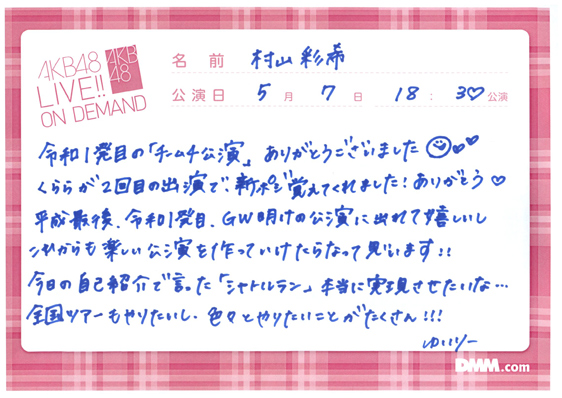 AKB48
LIVE!!
ON DEMAND
AKB
48
名前 村山彩希
公演日 5月 7日 18:30公演
令和1発目の「チーム4公演」ありがとうございました
くららが2回目の出演で、新ポジ覚えてくれました!ありがとう♡
平成最後、令和1発目、GW明けの公演に出れて嬉しいし
これからも楽しい公演を作っていけたらなって思います!!
今日の自己紹介で言った「シャトルラン」本当に実現させたいな…
全国ツアーもやりたいし、色々とやりたいことがたくさん!!!
ゆいりー
DMM.com